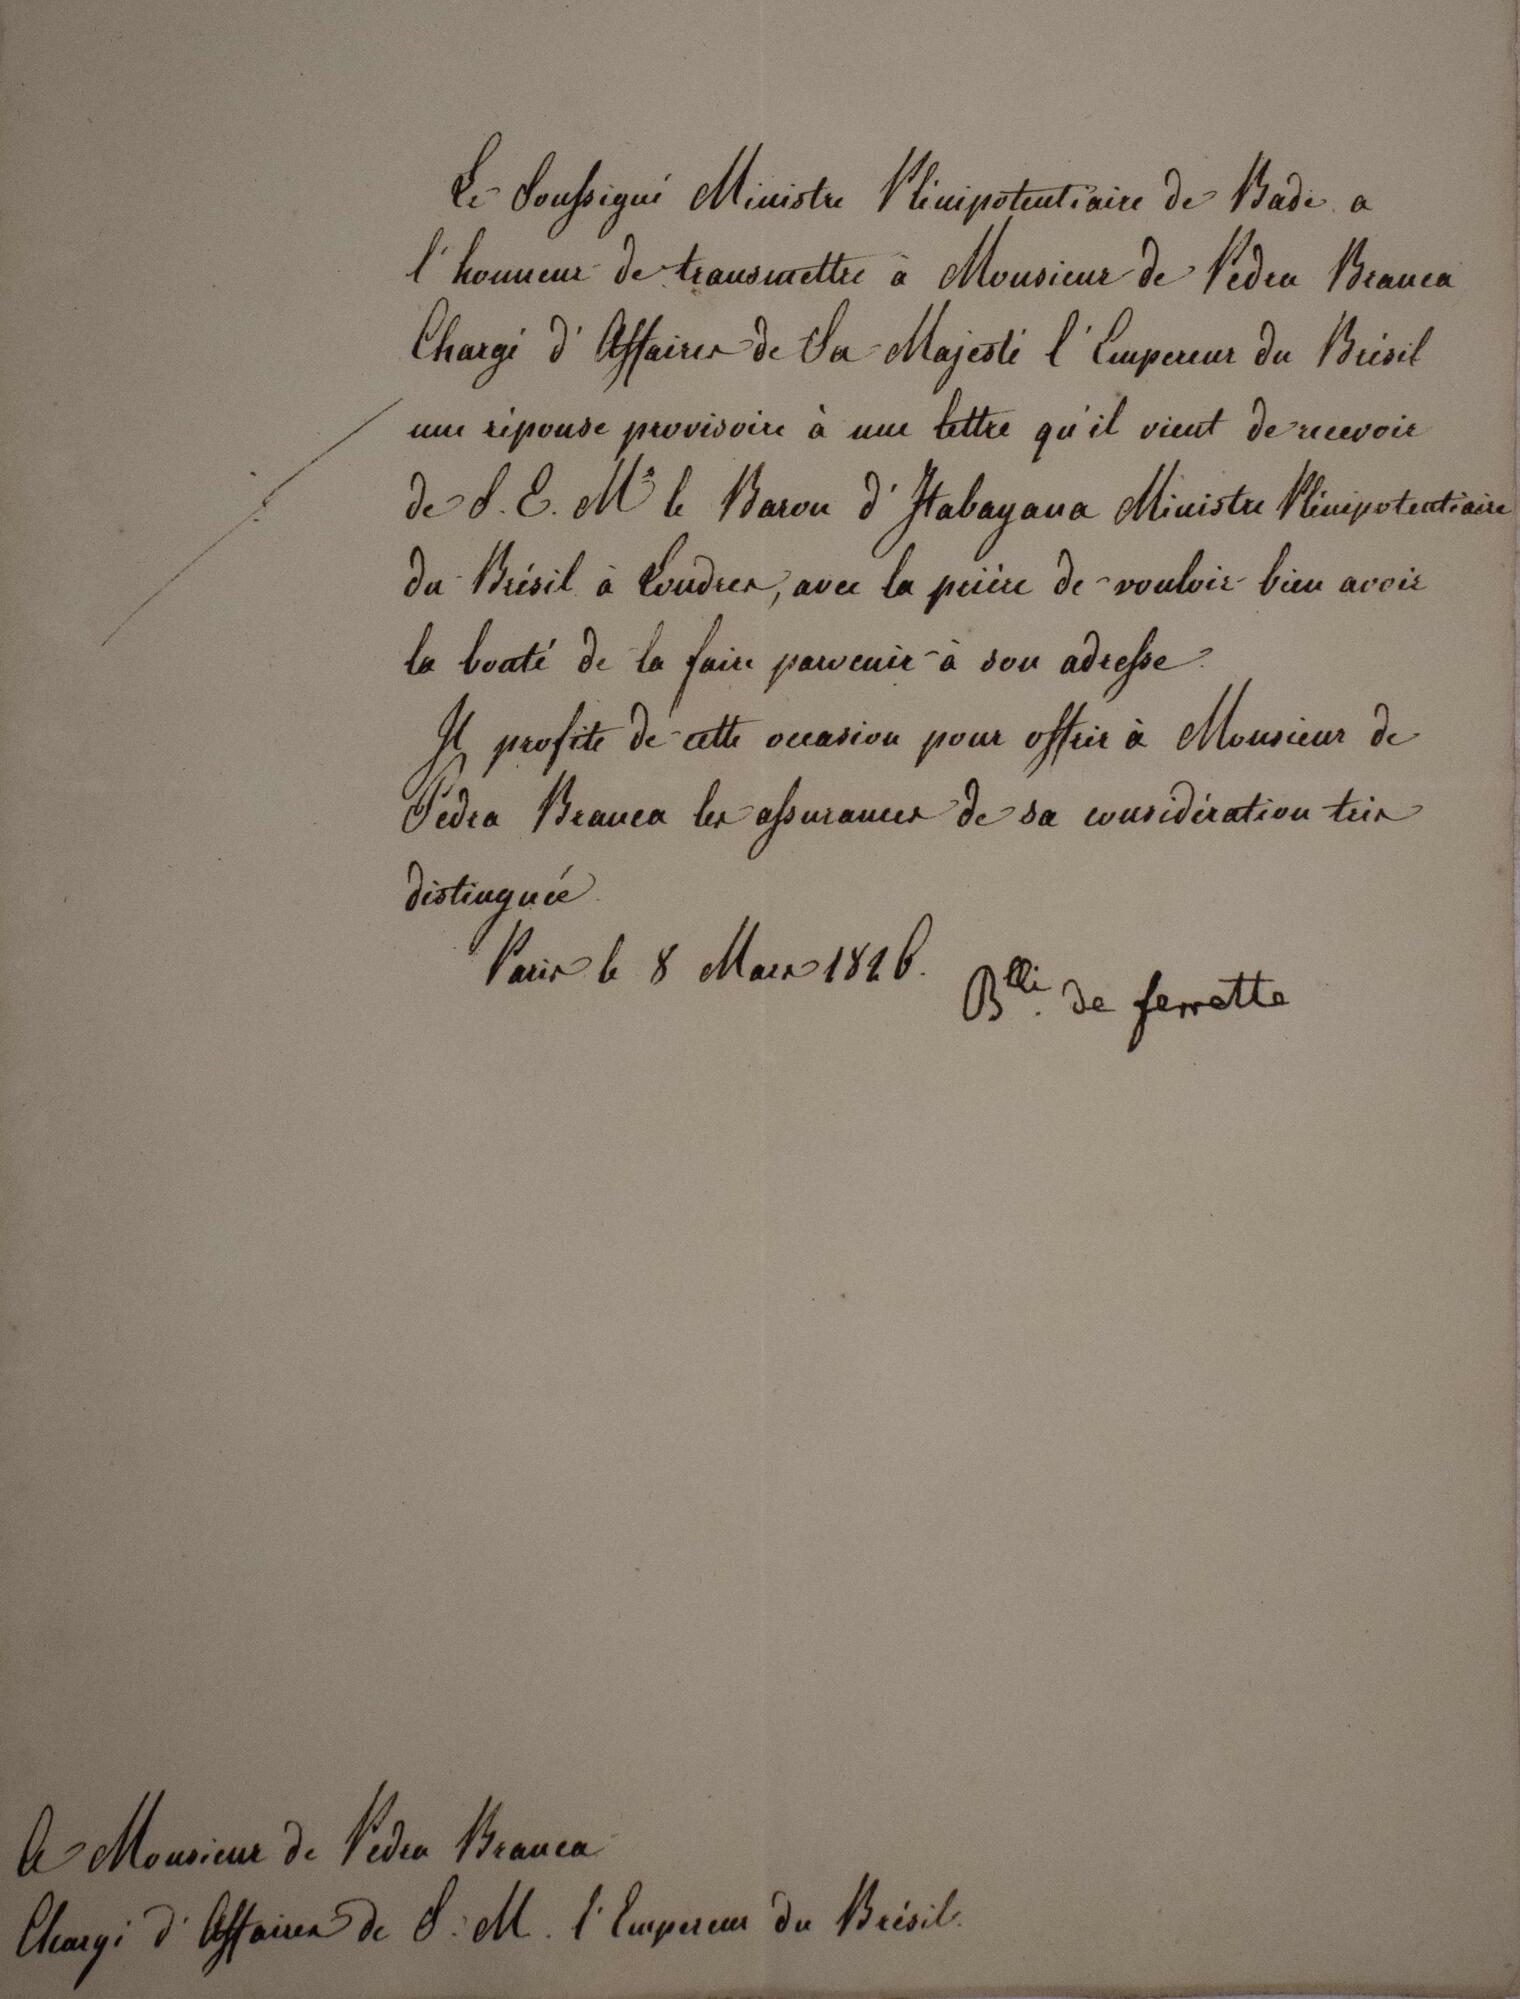 Le Soussigné Ministre Plénipotentiaire de Bade a
l'honneur de transmettre à Monsieur de Pedra Branca
Chargé d'Affaires de Sa Majesté l'Empereur du Brésil
une réponse provisoire à une lettre qu'il vient de recevoir
de S. E. Mr le Baron d'Itabayana Ministre Plénipotentiaire
du Brésil à Londres, avec la prière de vouloir bien avoir
la bonté de la faire parvenir à son adresse.
Il profite de cette occasion pour offrir à Monsieur de
Pedra Branca les assurances de sa considération très
distinguée.
Paris le 8 Mars 1826.
Blli. de ferrette
A Monsieur de Pedra Branca
Chargé d'Affaires de S. M. l'Empereur du Brésil.